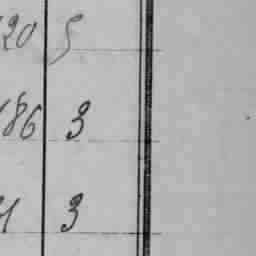 20 5
186 3
1 3